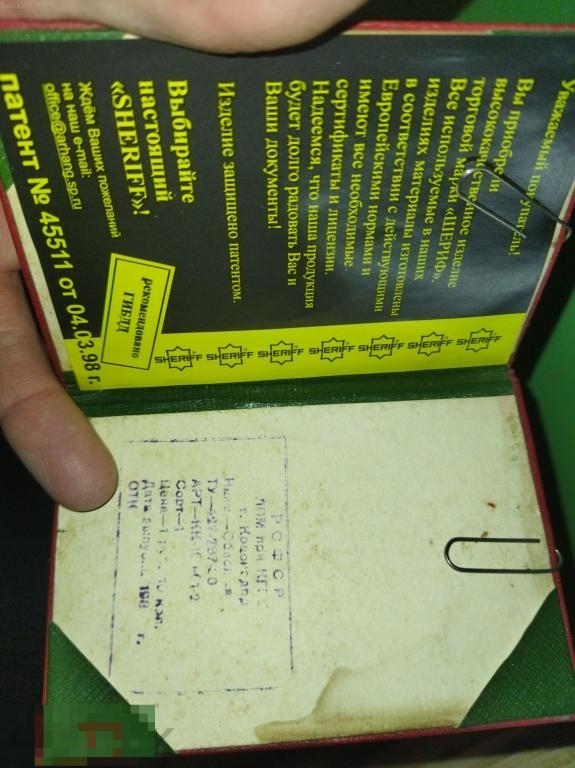 Уважаемый покупатель!
Вы приобрели
высококачественное изделие
торговой марки «ШЕРИФ».
Все используемые в наших
изделиях материалы изготовлены
в соответствии с действующими
Европейскими нормами и
имеют все необходимые
сертификаты и лицензии.
Надеемся, что наша продукция
будет долго радовать Вас и
Ваши документы!
Изделие защищено патентом.
Выбирайте
настоящий
«SHERIFF»!
Ждём Ваших пожеланий
на наш e-mail:
office@arbang.sp.ru
патент № 45511 от 04.03.98 г.
рекомендовано
ГИБДД
SHERIFF
SHERIFF
SHERIFF
SHERIFF
SHERIFF
SHERIFF
SHERIFF
РСФСР
при
г. Краснодар
Сорт—1
Цена—1
Дата выпуска 198 г.
ОТК
bakkidi